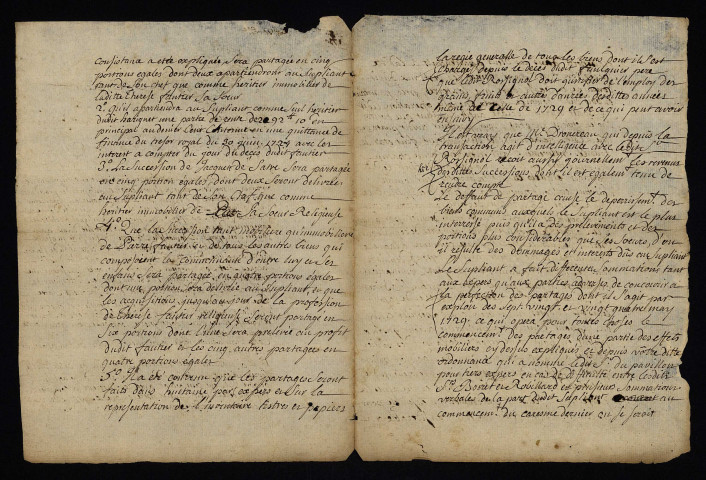 consistana a été expliquée sera partagée en cinq
portions egales dont deux apartiendront au supliant
tant de son chef que comme heritier immobilier de
laditte Therese fautier sa sœur
2. qu'il apartiendra au supliant comme seul heritier
dudit une partie de rente de 10 s en
principal au denier cent en une quittance de
finance du tresor royal du 20 juin 1724 avec les
interest a compter du jour du deces dudit fautier
3.° la succession de Jacques de sera partagée
en cinq portion egales dont deux seront delivrées
au supliant tant de son chef que comme
heritier immobilier de sa sœur Religieuse
4.° Que la succession tant mobiliere qu'immobiliere
de Pierre fautier et de tous les autres biens qui
composoient la communauté d'entre luy et ses
enfans sera partagée en quatre portions egales
dont une portion sera delivrée au supliant, et que
les acquisitions jusqu'au jour de la profession
de Therese fautier religieuse seront partagé en
six portions dont l'une sera prelevée au profit
dudit fautier et les cinq autres partagées en
quatre portions egales
5.° Il a été contenu que les partages seront
faits dans huitaine par experts et sur la
representation de l'inventaire titres et papiers
la regie generalle de tous les biens dont il s'est
chargé depuis le deces dudit pere
que ledit Rossignol doit justifier de l'employ des
grains, foins et autres danrées desdittes années
même de celle de 1729 et de ce qui peut avoir
en suivy
Il est vray que M.e Dronneau qui depuis la
transaction agit d'intelligence avec ledit S.r
Rossignol reçoit aussy journellem.t les revenus
desdittes successions, dont il est egalem.t tenu de
rendre compte
Le deffaut de partage cause le deperissem.t des
biens communs auxquels le supliant est le plus
interessé puis qu'il a des prelevements et des
portions plus considerables que ses sœurs, d'ou
il resulte des domages et interests dûs au supliant
Le supliant a fait differentes sommations tant
aux experts qu'aux parties adverses de concourir a
la perfection des partages dont il s'agit par
exploit des sept, vingt, et vingt quatre may
1729. ce qui opera pour toutes choses le
commencem.t des partages d'une partie des effets
mobiliers cy dessus expliqués et depuis votre ditte
ordonnance qui a nommé ledit S.r du pavillon
pour tiers expert en cas de entre lesdits
S.rs et Robillard et plusieurs sommations
verbales de la part dudit supliant au
commencem.t du caresme dernier on se seroit